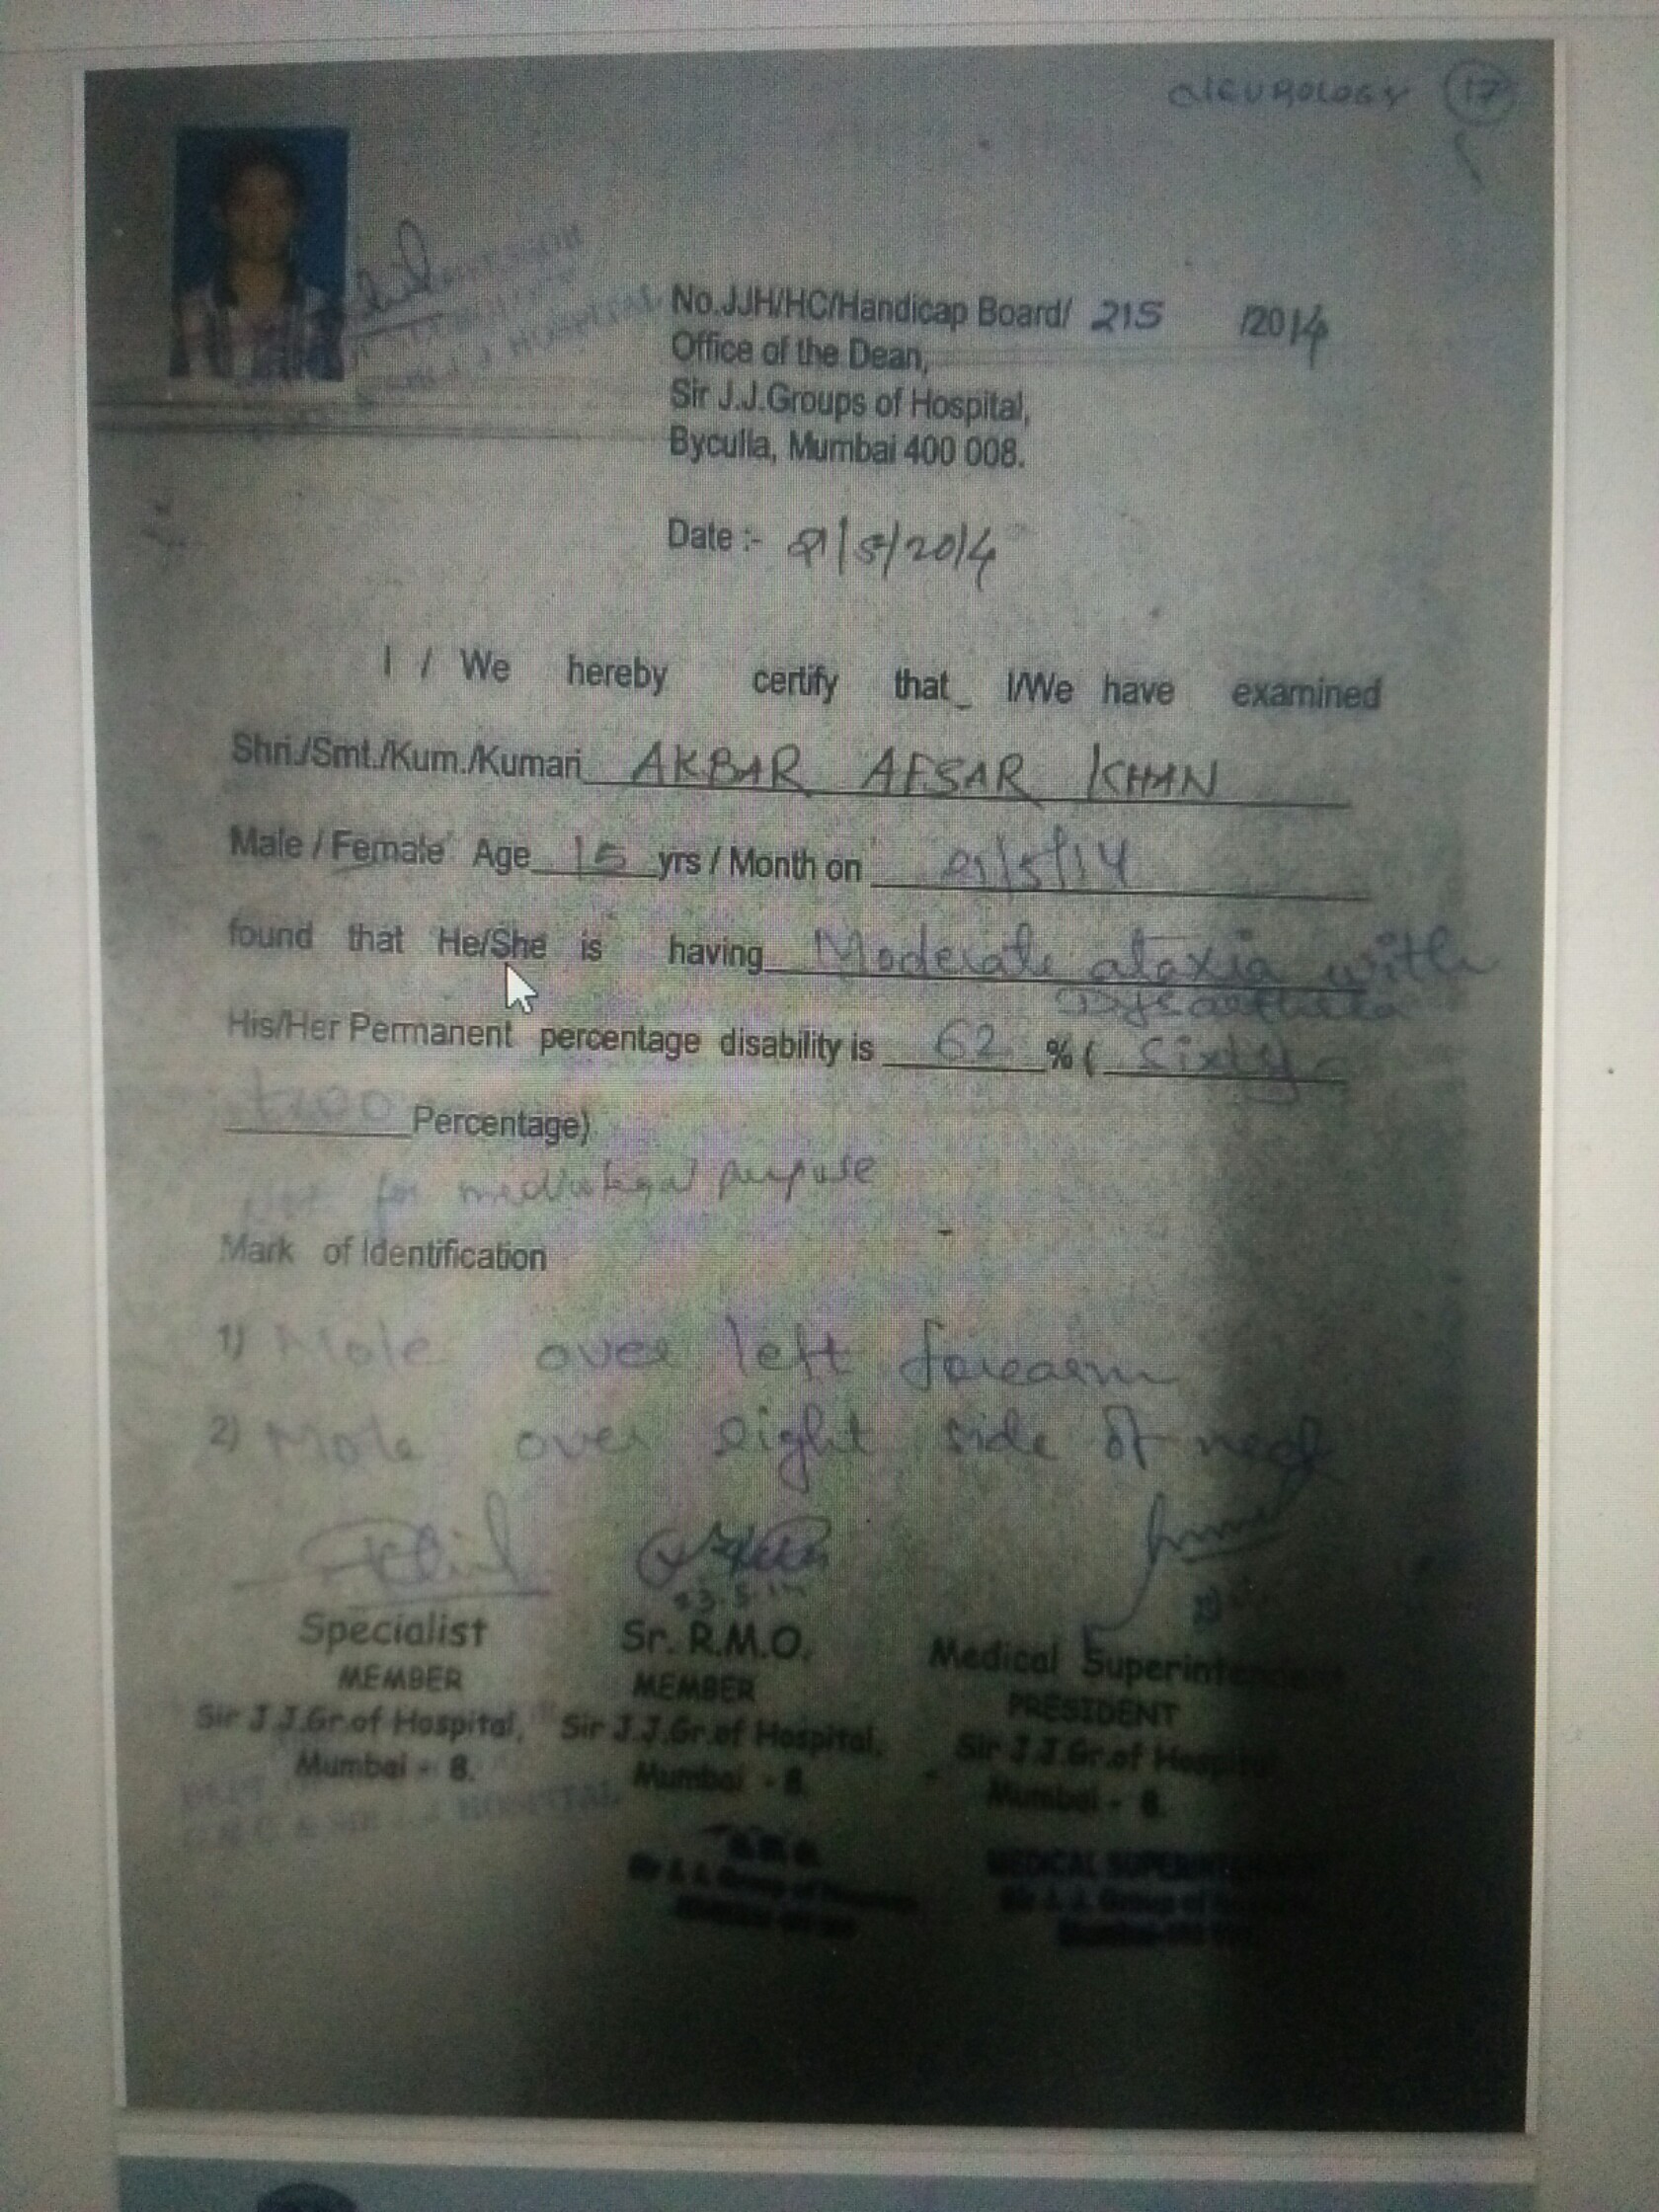 NEUROLOGY 17
No.JJH/HC/Handicap Board/ 215 /2014
Office of the Dean,
Sir J.J.Groups of Hospital,
Byculla, Mumbai 400 008.
Date :- 21/5/2014
I / We hereby certify that I/We have examined
Shri./Smt./Kum./Kumari AKBAR AFSAR KHAN
Male / Female Age 15 yrs / Month on 21/5/14
found that He/She is having Moderate ataxia with
Dysarthria
His/Her Permanent percentage disability is 62 % ( Sixty
two Percentage)
Not for medicolegal purpose
Mark of Identification
1) Mole over left forearm
2) Mole over right side of neck
23.5.14
Specialist Sr. R.M.O. Medical Superintendent
MEMBER MEMBER PRESIDENT
Sir J.J.Gr.of Hospital, Sir J.J.Gr.of Hospital, Sir J.J.Gr.of Hospital
Mumbai - 8. Mumbai - 8. Mumbai - 8.
HOSPITAL
MEDICAL SUPERINTENDENT
Sir J. J. Group of Sir J. J. Group of